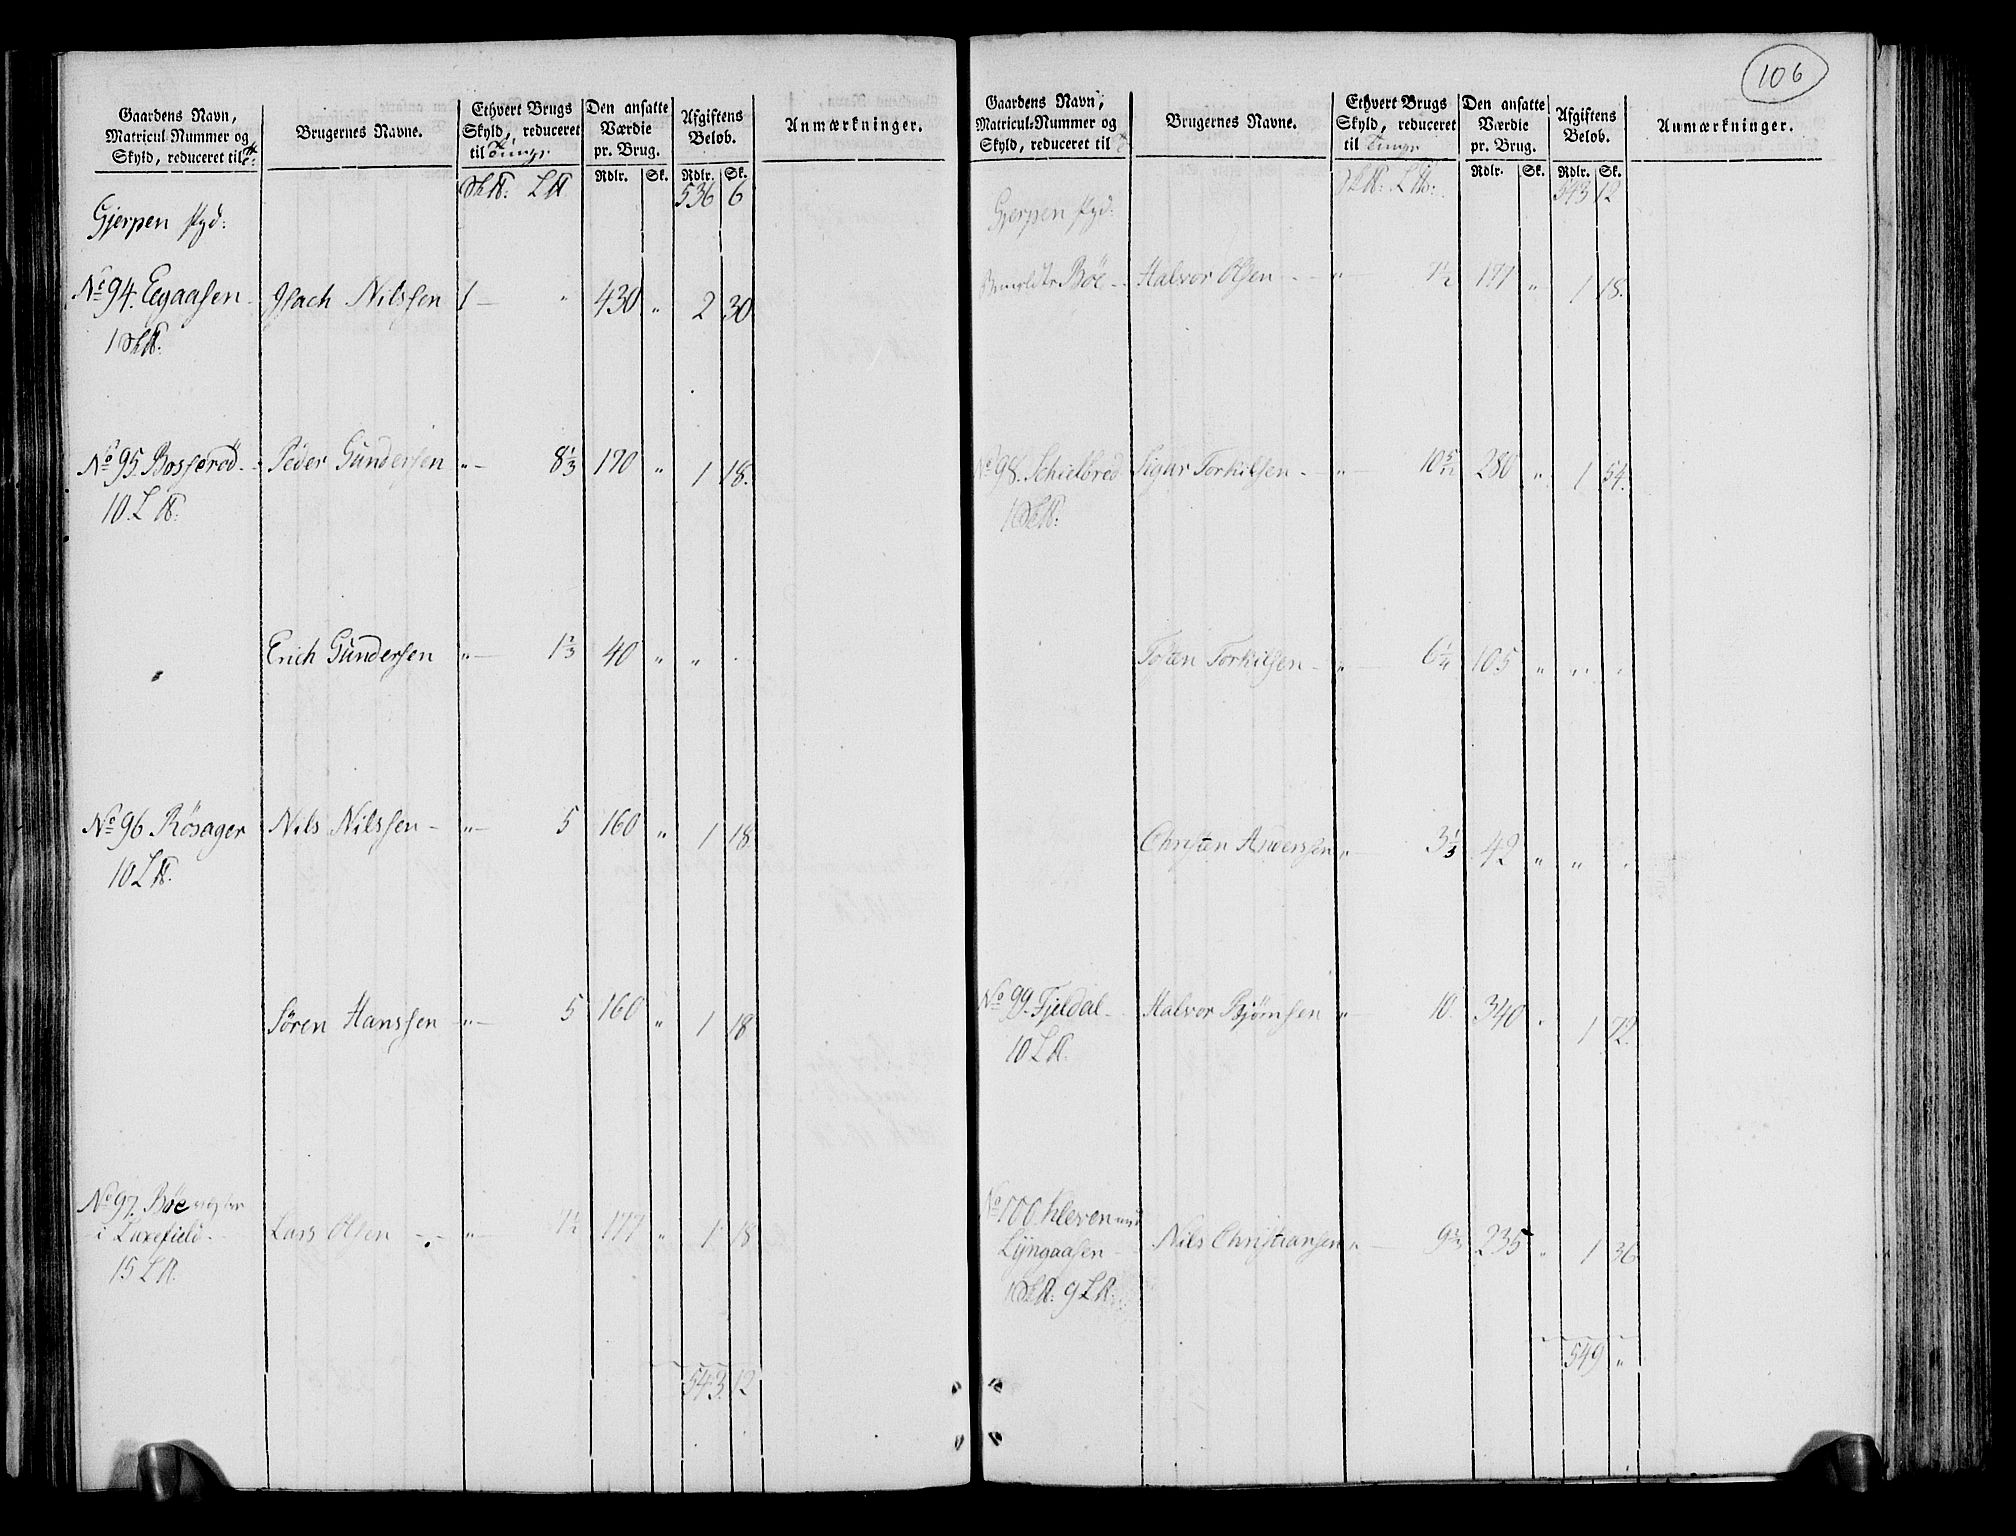 106
Gaardens Navn, Matricul-Nummer og Skyld, reduceret til
Brugernes Navne.
Ethvert Brugs Skyld, reduceret til Tunge
Den ansatte Værdie pr. Brug.
Afgiftens Beløb.
Anmærkninger.
Rdlr. Sk. Rdlr. Sk.
Sk℔: L℔ 536 6
Gjerpen
No 94. Egaasen Isach Nilssen 1 — " 430 " 2 30.
1 Sk℔:
No 95. Bosserød Peder Gundersen " — 8 1/3 170 " 1 18.
10. L℔:
Erich Gundersen " — 1 2/3 40 " "
No 96 Rösager Nils Nilssen " — 5 160 " 1 18
10 L℔.
Sören Hanssen " — 5 160 " 1 18
No 97. Böe
i Luxefield Lars Olsen " — 7 1/2 177 " 1 18
15 L℔.
543. 12
Gaardens Navn, Matricul-Nummer og Skyld, reduceret til
Brugernes Navne.
Ethvert Brugs Skyld, reduceret til Tunge
Den ansatte Værdie pr. Brug.
Afgiftens Beløb.
Anmærkninger.
Rdlr. Sk. Rdlr. Sk.
Sk℔: L℔: 543 12
Gjerpen
Böe Halvor Olsen " — 7 1/2 177 " 1 18.
No 98. Schielbred Sigur Torkilsen " — 10 5/12 280 " 1 54.
1 Sk℔:
Torkilsen " — 6 1/4 105 " "
Christen Anderssen " — 3 1/3 42 " "
No 99. Fjeldal Halvor Bjørnsen " — 10. 340 " 1 72.
10 L℔.
No 100. Kleven med
Lyngaasen Nils Christiansen " — 235 " 1 36
1 Sk℔: 9 L℔:
549 "